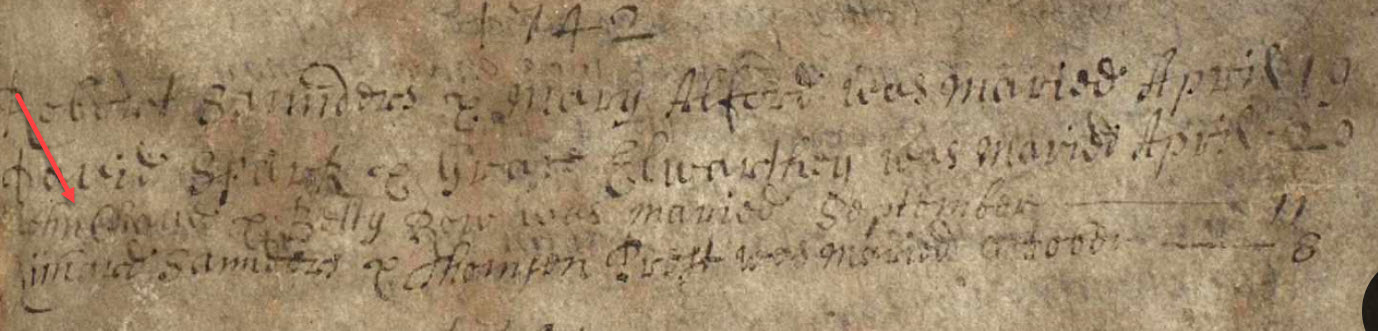 1742
Robert Saunders & Mary Alford was maried April 19
David Spark & Grace Elwarthey was maried April 20
John & Betty was maried September 11
Saunders & Thomsen Prest was maried 8